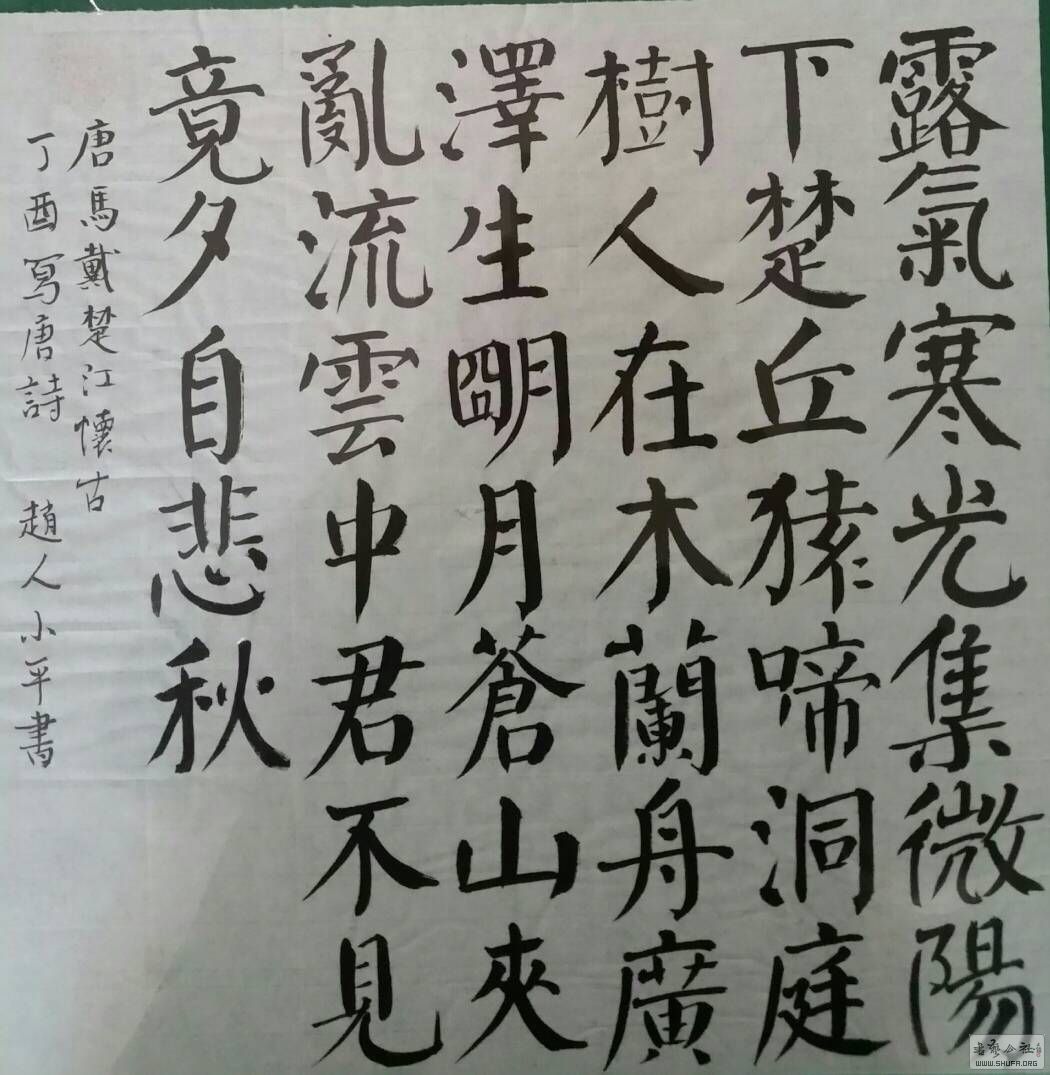 露氣寒光集微陽
下楚丘猿啼洞庭
樹人在木蘭舟廣
澤生朙月蒼山夾
亂流雲中君不見
竟夕自悲秋
唐馬戴楚江懷古
丁酉寫唐詩 趙人小平書
书艺公社
WWW.SHUFA.ORG